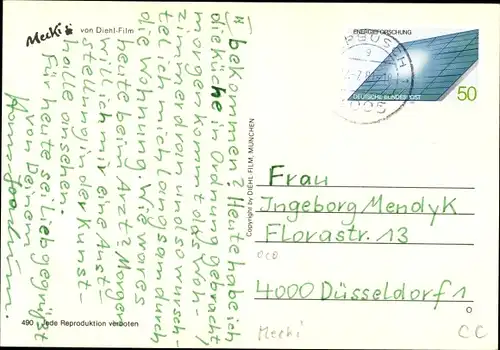 Mecki von Diehl-Film
bekommen? Heute habe ich
die Küche in Ordnung gebracht,
morgen kommt das Wohn-
zimmer dran und so wursch-
tel ich mich langsam durch
die Wohnung. Wie war es
heute beim Arzt? Morgen
will ich mir eine Aust-
stellung in der Kunst-
halle ansehen.
Für heute sei lieb gegrüßt
von Deinem
490 Jede Reproduktion verboten
Copyright by DIEHL-FILM, MÜNCHEN
ENERGIEFORSCHUNG
DEUTSCHE BUNDESPOST
50
Frau
Ingeborg Mendyk
Florastr. 13
4000 Düsseldorf 1
Mecki
CC